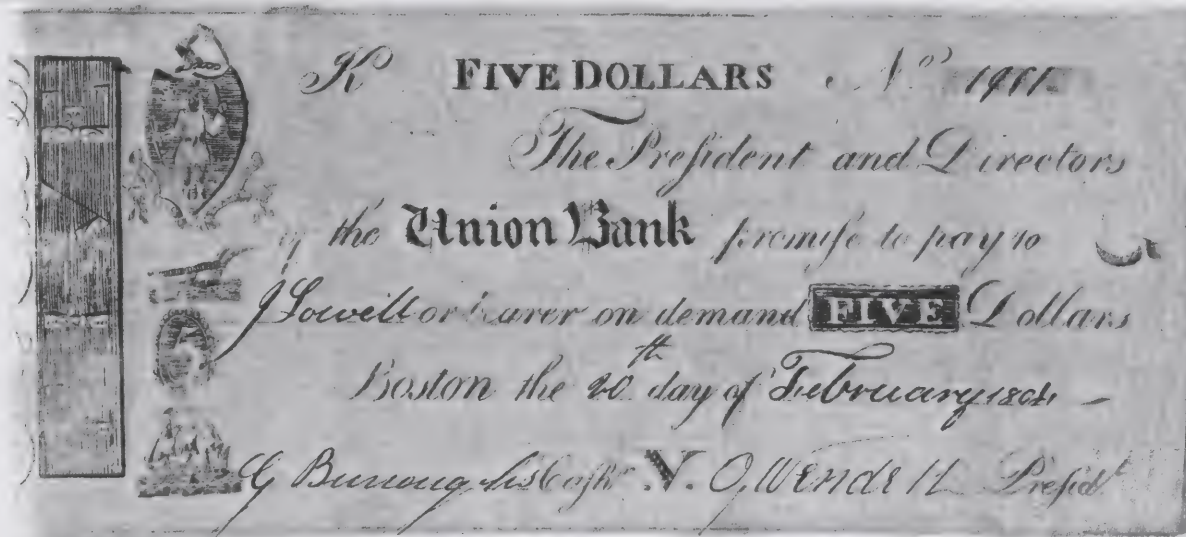 K FIVE DOLLARS No
The Preſident and Directors
of the Union Bank promiſe to pay to
J Lowell or bearer on demand FIVE Dollars
Boston the 20th day of February 1804
G Burroughs Caſhr O, Wendell Preſidt